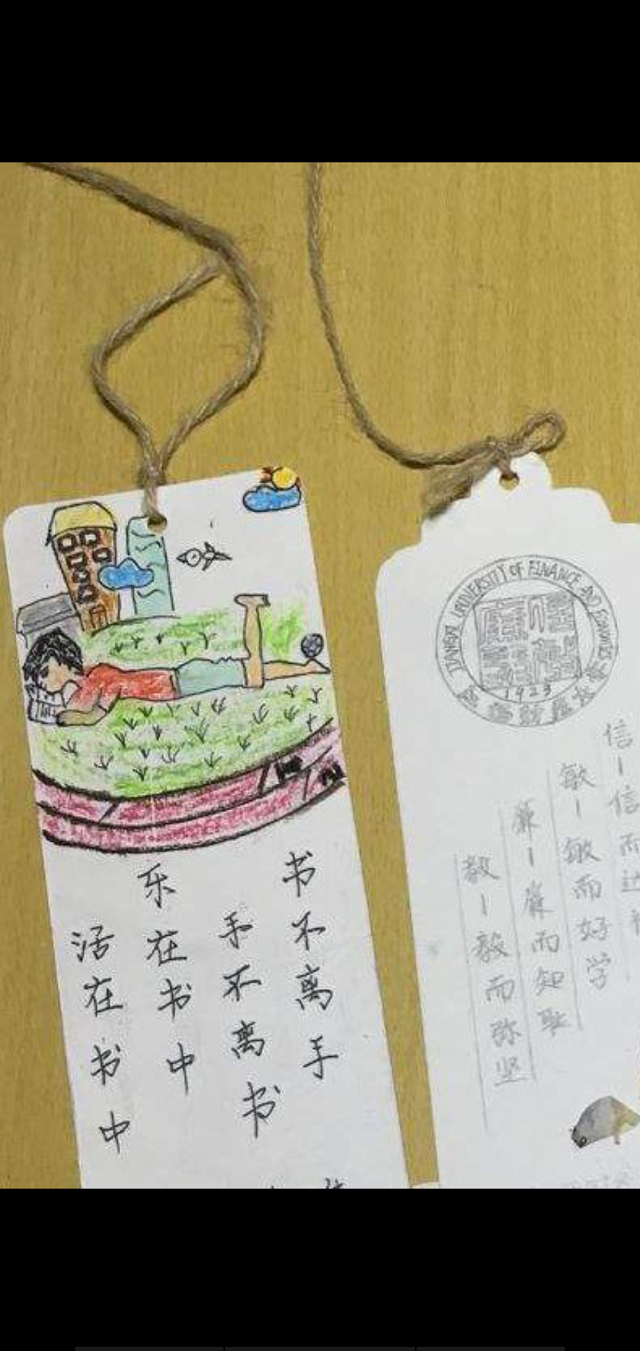 书不离手
手不离书
乐在书中
活在书中
JIANGXI UNIVERSITY OF FINANCE AND ECONOMICS
1923
江西财经大学
信-信而达
敏-敏而好学
廉-廉而知耻
毅-毅而弥坚